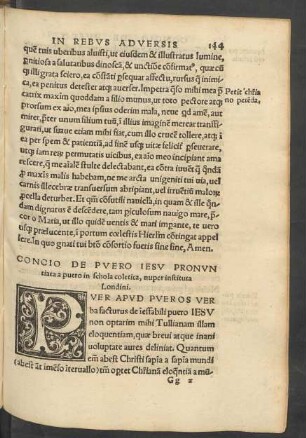 IN REBVS ADVERSIS 144
quē tuis vberibus aluisti, ut eiusdem & illustratus lumine,
ꝑnitiosa a salutaribus dinoscā, & unctiōe cōfirmatᵒ, quæ cū
qꝫ illi grata sciero, ea cōstāti ꝓsequar affectu, rursus ꝗ inimi/
ca, ea penitus detester atqꝫ auerser. Impetra q̄so mihi mea ꝓ
catrix maxim quoddam a filio munus, ut toto pectore atqꝫ
prorsum ex aīo, mea ipsius oderim mala, neue qd amē, aut
mirer, pter unum filium tuū, ī illius imaginē merear transfi/
gurari, ut sicut etiam mihi stat, cum illo cruce tollere, atqꝫ ī
ea per spem & patientiā, ad finē usqꝫ vitæ feliciꝫ ꝑseuerare,
atqꝫ iam resp permutatis vicibus, ea aīo meo incipiant ama
rescere, quæ me aliqñ stulte delectabant, ea cōtra
ꝓ maxis malis habebam, ne me arcta unigeniti tui uia, uel
carnis illecebræ transuersum abripiant, uel
pella deturbet. Et qm̄ cōsortii nauicella, in quam & ille qñ
dam dignatus ē descēdere, tam piculosum nauigo mare,
cor o Maria, ut illo quidē uentis & undis imperāte, te uero
usqꝫ prælucente, ī portum cœlestis Hierlm̄ cōtingat appel
lere. In quo gnati tui btō cōsortio fœtis sine fine, Amen.
Petit chīa
no petēda.
CONCIO DE PVERO IESV PRONVN
tiata a puero in schola coletica, nuper instituta
Londini.
PVER APVD PVEROS VER
ba facturus de ieffabili puero IESV
non optarim mihi Tullianam illam
eloquentiam, quæ breui atque inani
uoluptate aures deliniat. Quantum
em̄ abest Christi sapīa a sapīa mundi
(abest āt imēso iteruallo) tm̄ optet Chīanā eloq̄ntiā a mū/
Gg 2